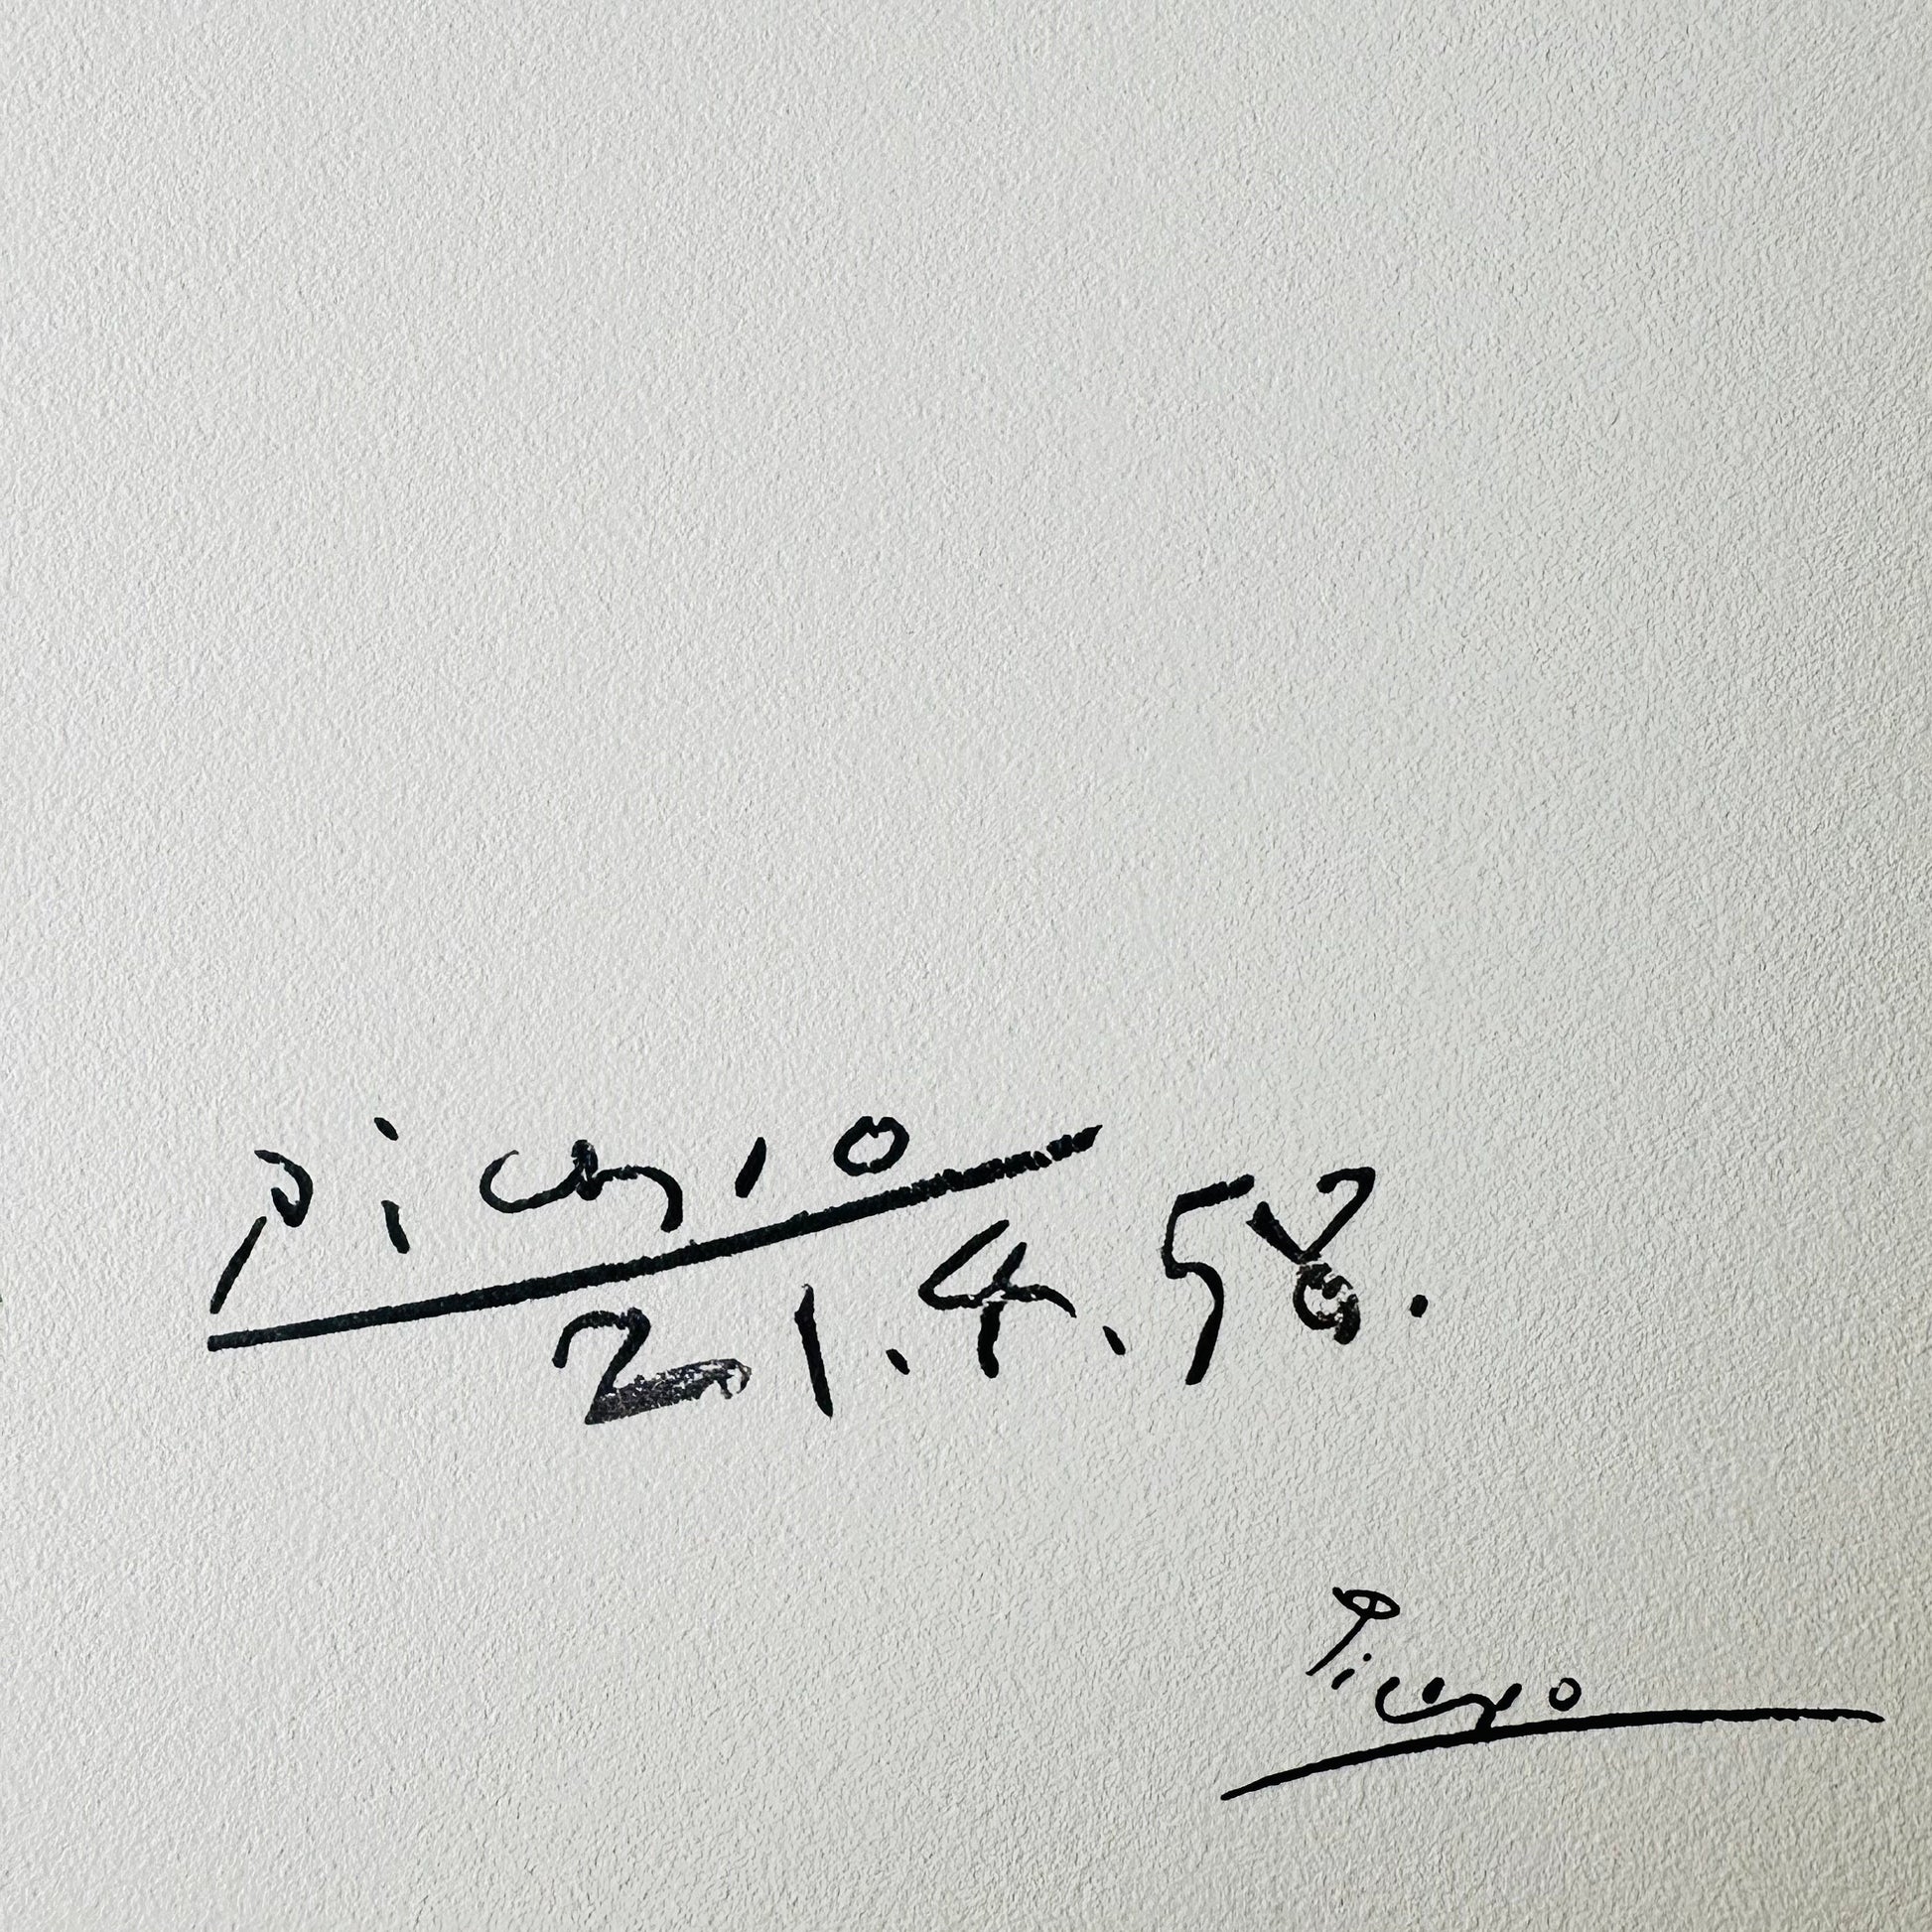 Picasso
21.4.58.
Picasso